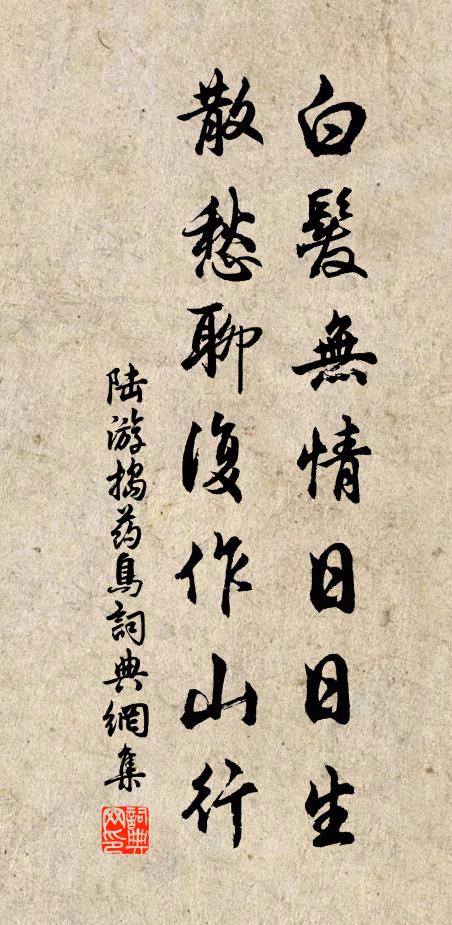 白髮無情日日生
散愁聊復作山行
陆游搗药鳥詞典網集
詞典網印